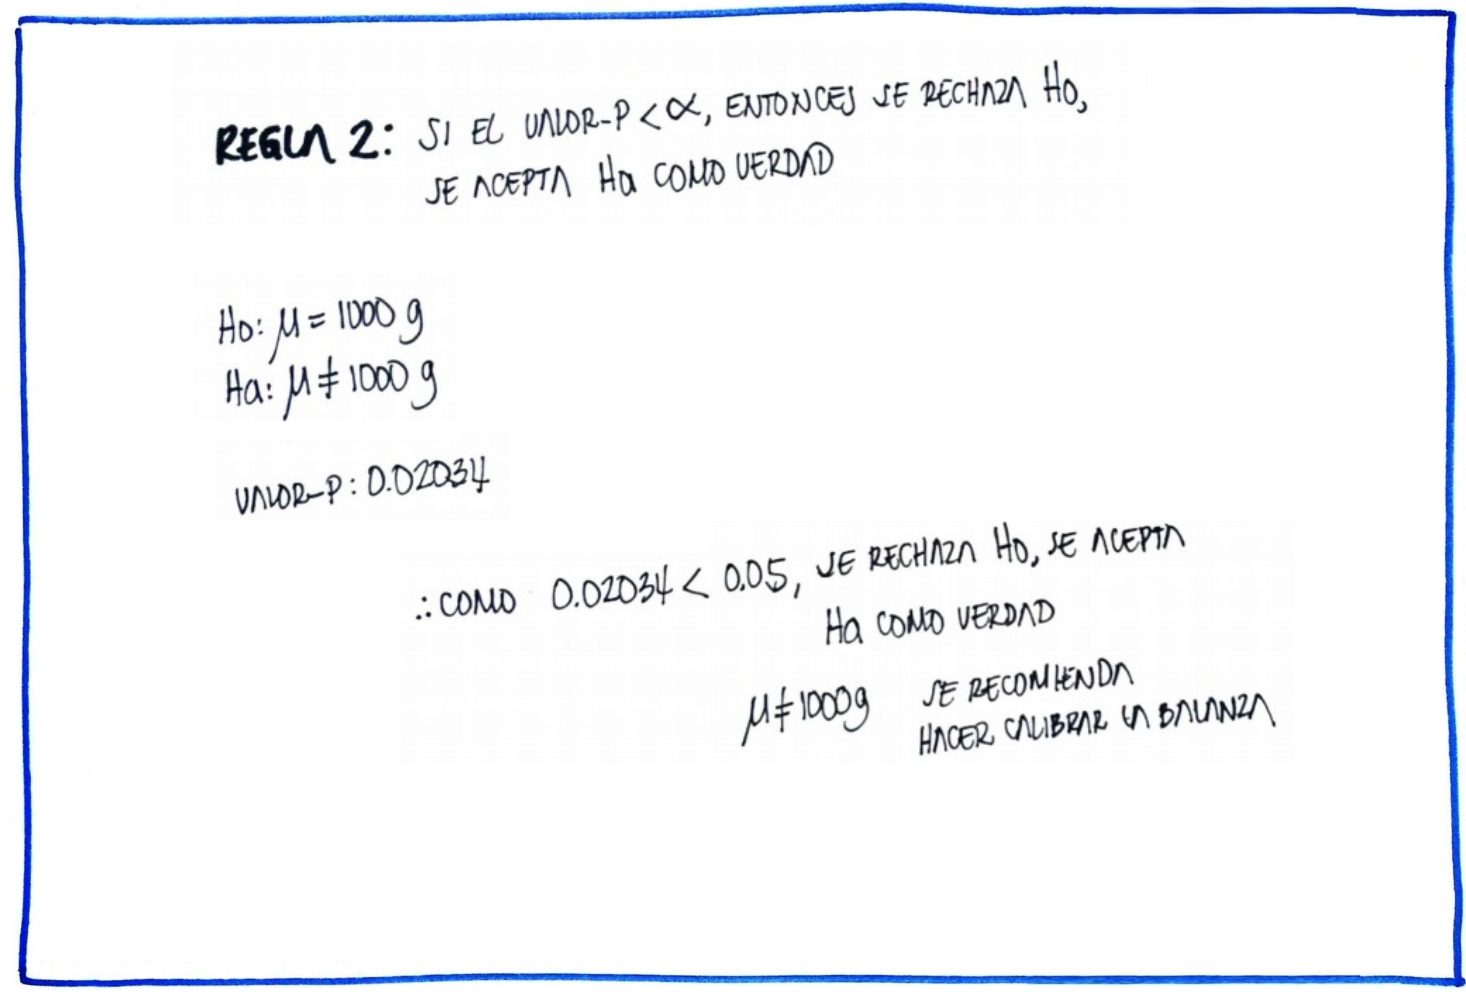 REGLA 2: SI EL VALOR-P < α, ENTONCES SE RECHAZA Ho,
SE ACEPTA Ha COMO VERDAD
Ho: μ = 1000 g
Ha: μ ≠ 1000 g
VALOR-P: 0.02034
∴ COMO 0.02034 < 0.05, SE RECHAZA Ho, SE ACEPTA
Ha COMO VERDAD
μ ≠ 1000g SE RECOMIENDA
HACER CALIBRAR LA BALANZA